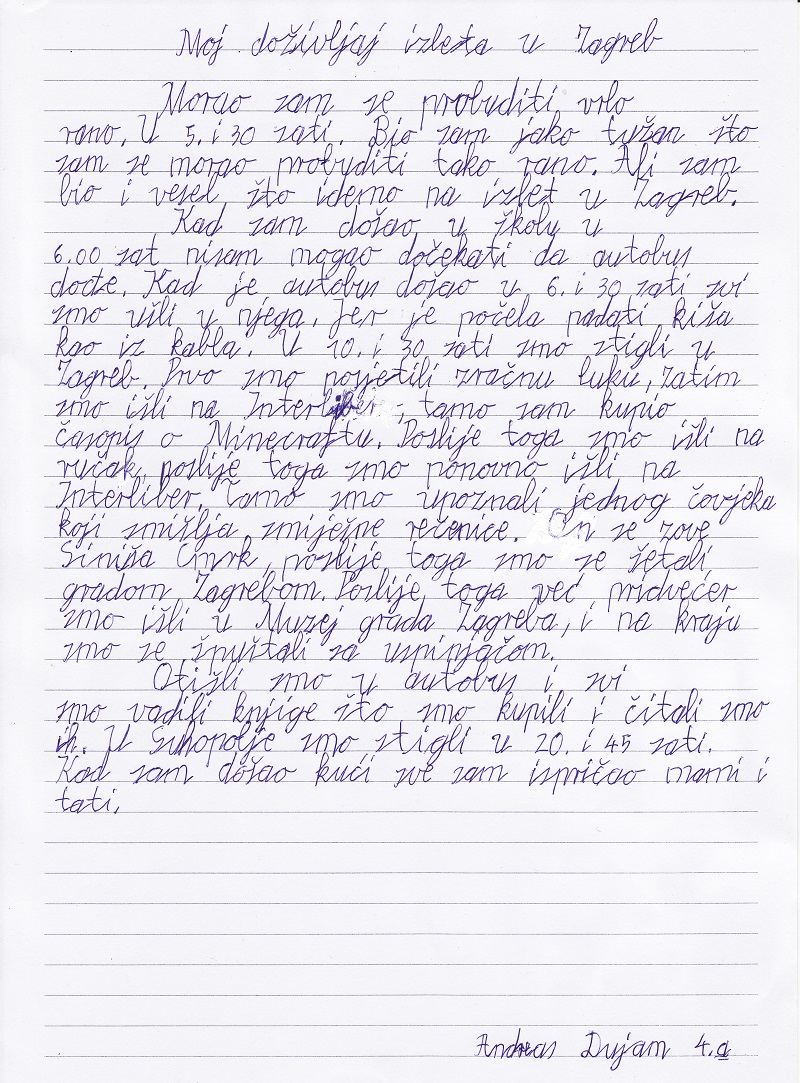 Moj doživljaj izleta u Zagreb
Morao sam se probuditi vrlo
rano. U 5. i 30 sati. Bio sam jako tužan što
sam se morao probuditi tako rano. Ali sam
bio i vesel što idemo na izlet u Zagreb.
Kad sam došao u školu u
6.00 sat nisam mogao dočekati da autobus
dođe. Kad je autobus došao u 6. i 30 sati svi
smo ušli u njega. Jer je počela padati kiša
kao iz kabla. U 10. i 30 sati smo stigli u
Zagreb. Prvo smo posjetili zračnu luku, zatim
smo išli na Interliber, tamo sam kupio
časopis o Minecraftu. Poslije toga smo išli na
ručak, poslije toga smo ponovno išli na
Interliber. Tamo smo upoznali jednog čovjeka
koji smišlja smiješne rečenice. On se zove
Siniša Cmrk, poslije toga smo se šetali
gradom Zagrebom. Poslije toga već pridvečer
smo išli u Muzej grada Zagreba, i na kraju
smo se spuštali sa uspinjačom.
Otišli smo u autobus i svi
smo vadili knjige što smo kupili i čitali smo
ih. U Suhopolje smo stigli u 20. i 45 sati.
Kad sam došao kući sve sam ispričao mami i
tati.
Andreas Dujam 4.a